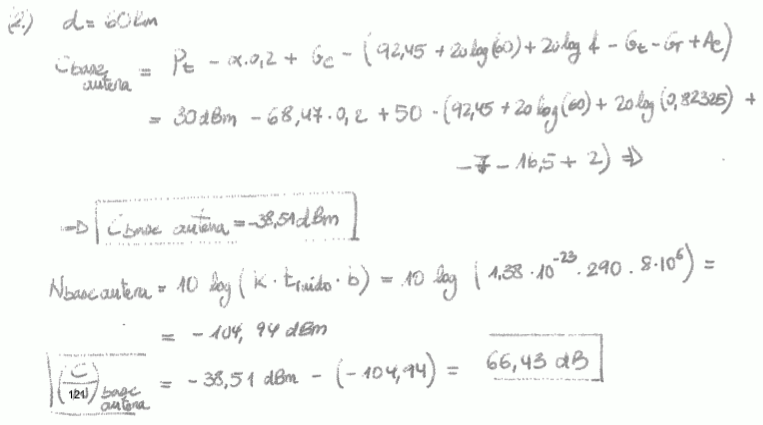 (2.) d = 60 km
C base antena = Pt - α.0,2 + Gc - (92,45 + 20 log(60) + 20 log f - Gt - Gr + Ac)
= 30 dBm - 68,47·0,2 + 50 - (92,45 + 20 log(60) + 20 log(0,82325) +
-7 - 16,5 + 2) ⇒
⇒ C base antena = -38,51 dBm
N base antena = 10 log (k · truido · b) = 10 log (1,38·10^-23 · 290 · 8·10^6) =
= -104,94 dBm
(C/121) base antena = -38,51 dBm - (-104,94) = 66,43 dB